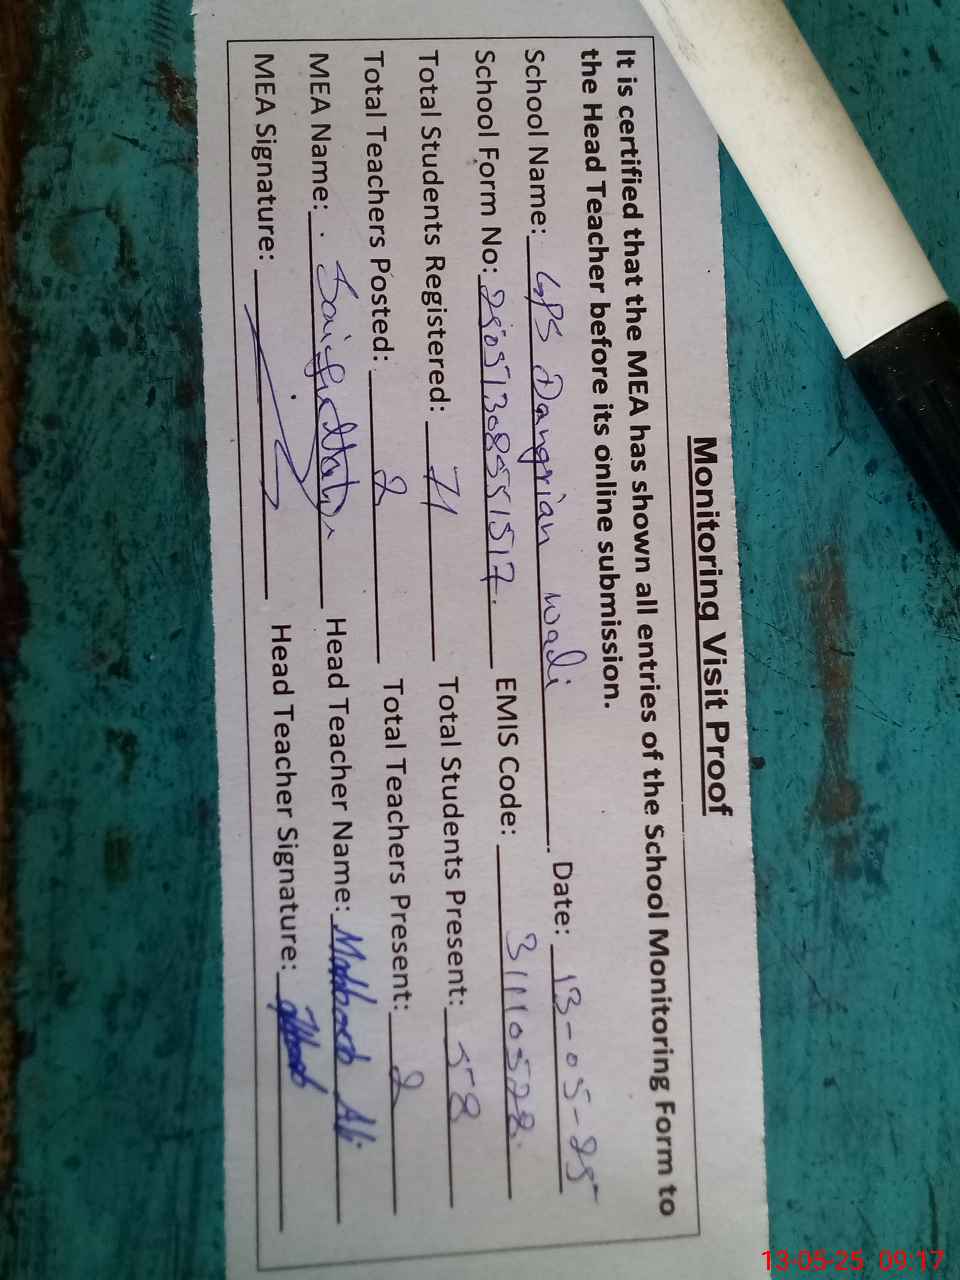 Monitoring Visit Proof
It is certified that the MEA has shown all entries of the School Monitoring Form to
the Head Teacher before its online submission.
School Name: GPS Dangrian wadi Date: 13-05-25
School Form No: 25051308551517. EMIS Code: 31110528.
Total Students Registered: 71 Total Students Present: 58
Total Teachers Posted: 2 Total Teachers Present: 2
MEA Name: Head Teacher Name: Ali
MEA Signature: Head Teacher Signature:
13-05-25 09:17